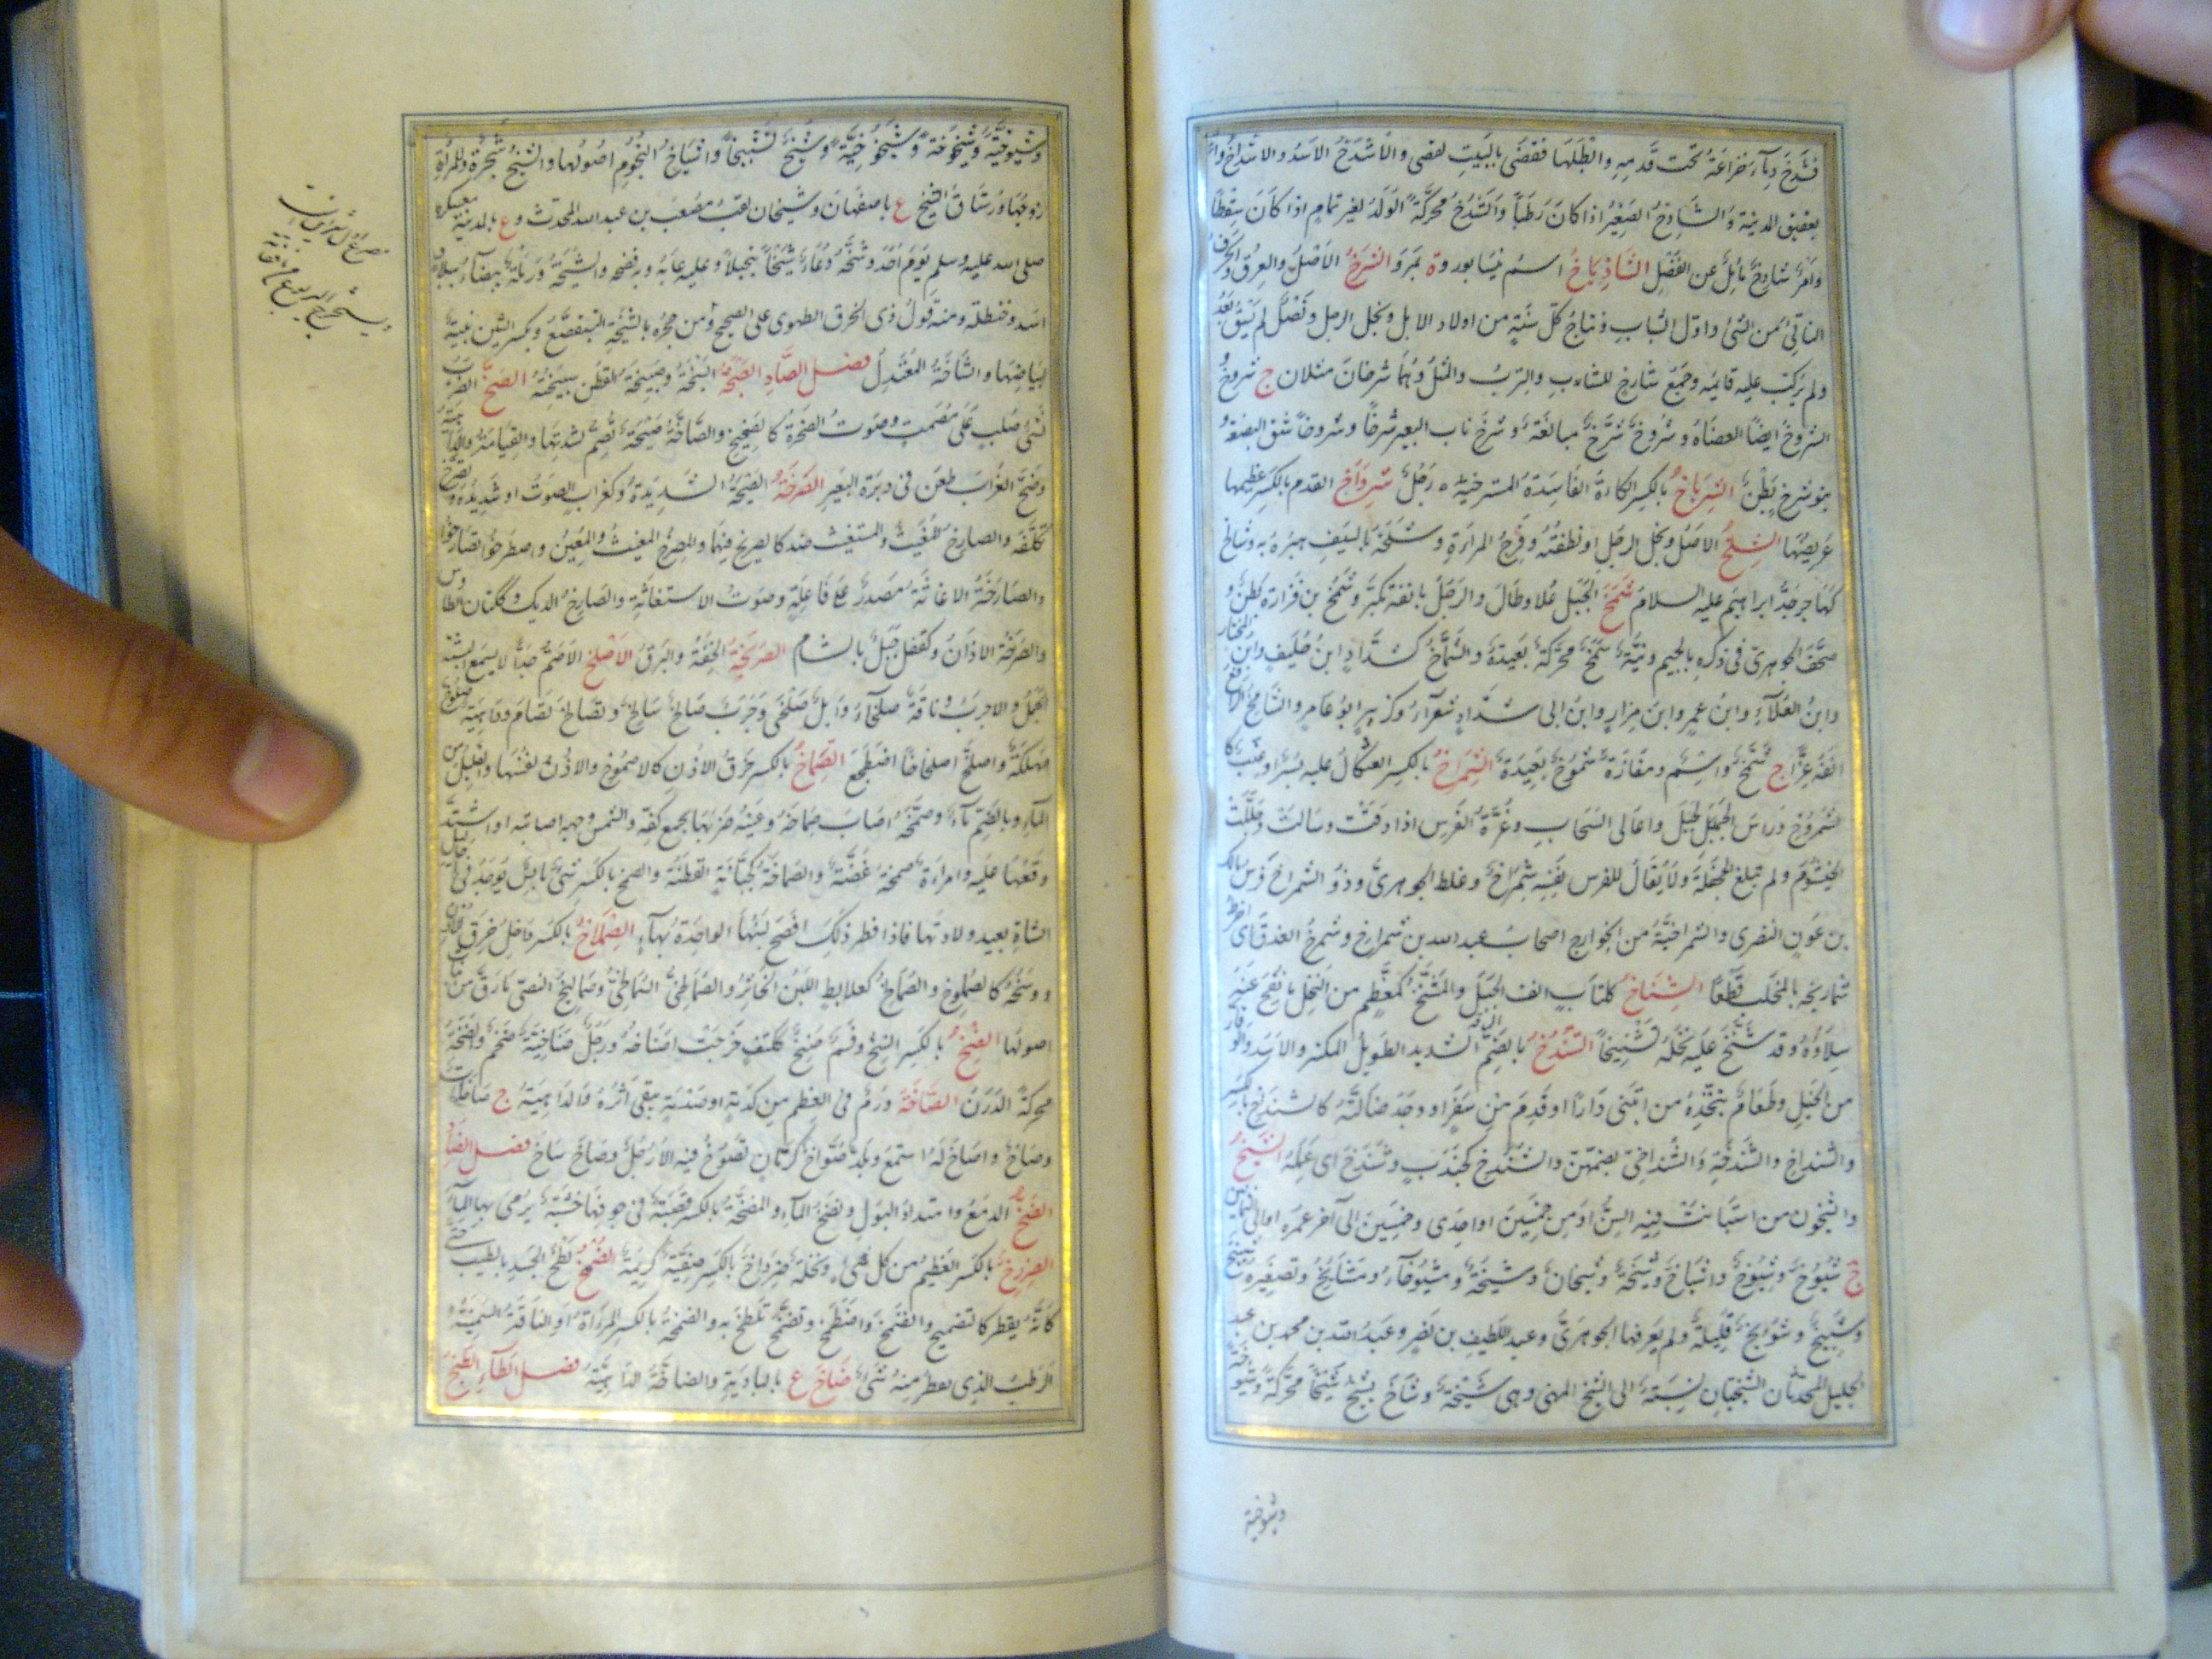 فشدخ دماء خزاعة تحت قدميه وابطلها فقضى بالبيت لقصى والاشدخ الاسد والاشداخ واد
بعقيق المدينة والشادخ الصغير اذا كان رطبا والشدخ محركة الولد لغير تمام اذا كان سقطا
وامر شادخ مائل عن القصد الشاذياخ اسم نيسابور وة بمرو الشرخ الاصل والعرق والحرف
الناتئ من الشئ واول الشباب ونتاج كل سنة من اولاد الابل ونجل الرجل ونصل لم يسق بعد
ولم يركب عليه قائمه وجمع شارخ للشاب والترب والمثل وهما شرخان مثلان ج شروخ و
الشروخ ايضا العضاه وشروخ شرخ مبالغة وشرخ ناب البعير شرخا وشروخا شق البضعة و
بنو شرخ بطن الشرباخ بالكسر الكماة الفاسدة المسترخية رجل شرواخ القدم بالكسر عظيمها
عريضها الشلخ الاصل ونجل الرجل او نطفته وفرج المراة وشلخه بالسيف هبره به وشالخ
كهاجر جد ابراهيم عليه السلام شمخ الجبل علا وطال والرجل بانفه تكبر وشمخ بن فزارة بطن و
صحف الجوهرى فى ذكره بالجيم ونية شمخ محركة بعيدة والشماخ كشداد ابن حليف وابن المختار
وابن العلاء وابن عمرو وابن ضرار وابن ابى شداد شعراء وكزبير ابو عامر والشامخ الرافع
انفه عزا ج شمخ واسم ومفازة شموخ بعيدة الشمراخ بالكسر العثكال عليه بسر او عنب كا
لشمروخ وراس الجبل واعالى السحاب وغرة الفرس اذا دقت وسالت وجللت
الخيشوم ولم تبلغ الجحفلة ولا يقال للفرس نفسه شمراخ وغلط الجوهرى وذو الشمراخ فرس مالك
بن عون النصرى والشمراخية من الخوارج اصحاب عبد الله بن شمراخ وشمرخ العذق اى اخرط
شماريخه بالمخلب قطعا الشناخ ككتاب انف الجبل والمشنخ كمعظم من النخل ما نقح عنه
سلاؤه وقد شنخ عليه نخله تشنيخا الشندخ بالضم الشديد الطويل المكتنز والاسد والوقاد
من الخيل وطعام يتخذه من ابتنى دارا او قدم من سفر او وجد ضالته كالشندخ بالكسر
والشنداخ والشندخة والشنداخى بضمهن والشندخ كجندب وشندخ اى عمله الشيخ
والشيخون من استبانت فيه السن او من خمسين او احدى وخمسين الى آخر عمره او الى الثمانين
ج شيوخ وشيوخ واشياخ وشيخة وشيخان وشيخة ومشيوخاء ومشايخ وتصغيره شييخ
وشييخ وشويخ قليلة ولم يعرفها الجوهرى وعبد اللطيف بن نصر وعبد الله بن محمد بن عبد
الجليل المحدثان الشيخيان نسبة الى الشيخ المهنى وهى شيخة وشاخ يشيخ شيخا محركة وشيوخة
وشيوخية
وشيوخية وشيخوخة وشيخوخية وشيخ تشييخا واشياخ النجوم اصولها والشيخ شجرة وللمراة
زوجها ورستاق الشيخ ع باصفهان وشيخان لقب مصعب بن عبد الله المحدث وع بالمدينة معسكره
صلى الله عليه وسلم يوم احد وشيخه دعاه شيخا تبجيلا وعليه عابه وبه فضحه والشيخة رملة بيضاء ببلاد
اسد وحنظلة ومنه قول ذى الخرق الطهوى على الصحيح ومن جحره بالشيخة اليتقصع وبكسر الشين ثنية
لبياضها والشاخة المعتدل فصل الصاد الصبخة السبخة وصبيخة القطن سبيخته الصخ الضرب
بشئ صلب على مصمت وصوت الصخرة كالصخيخ والصاخة صيحة تصم لشدتها والقيامة والداهية
وصخ الغراب طعن فى دبرة البعير الصرخة الصيحة الشديدة وكغراب الصوت او شديده وتصرخ
تكلفه والصارخ المغيث والمستغيث ضد كالصريخ فيهما والمصرخ المغيث والمعين واصطرخوا تصارخوا
والصارخة الاغاثة مصدر على فاعلة وصوت الاستغاثة والصارخ الديك وككتان الطاوس
والصرخة الاذان وكقفل جبل بالشام الصريخة الخفة والبرق الاصلخ الاصم جدا لا يسمع البتة
الجمل والاجرب وناقة صلخاء وابل صلخى وجرب صالخ سالخ وتصالخ تصامم وداهية صلوخ
مهلكة واصلخ اصلخاخا اضطجع الصماخ بالكسر خرق الاذن كالاصموخ والاذن نفسها والقليل من
الماء وبالضم ماء وصمخه اصاب صماخه وعينه ضربها بجمع كفه والشمس وجهه اصابته او اشتد
وقعها عليه وامراة صمخة غضة والصماخة كجبانة القطنة والصمخ بالكسر شئ يابس يوجد فى احاليل
الشاة بعيد ولادتها فاذا فطر ذلك افصح لبنها الواحدة بهاء الصملاخ بالكسر داخل خرق الاذن
ووسخه كالصملوخ والصمالخ كعلابط اللبن الخاثر والصمالخى السمالخى وصماليخ النصى ما رق من نبات
اصولها الصنخ بالكسر السنخ وفم صنخ ككتف خرجت اصناخه ورجل صناخية ضخم والصنخة
محركة الدرن الصاخة ورم فى العظم من كدمة او صدمة يبقى اثره والداهية ج صاخات
وصاخ واصاخ له استمع وبلد صواخ كرمان تصوخ فيه الارجل وصاخ ساخ فصل الضاد
الضخ الدمع وامتداد البول ونضخ الماء والمضخة بالكسر قصبة فى جوفها خشبة يرمى بها الماء
الضرزخ بالكسر العظيم من كل شئ ونخلة ضرداخ بالكسر صفية كريمة الضمخ لطخ الجسد بالطيب حتى
كانه يقطر كالتضميخ وانضمخ واضطمخ وتضمخ تلطخ به والضمخة بالكسر المراة او الناقة السمينة
الرطب الذى يقطر منه شئ ضاخ ع بالبادية والضاخة الداهية فصل الطاء الطبخ